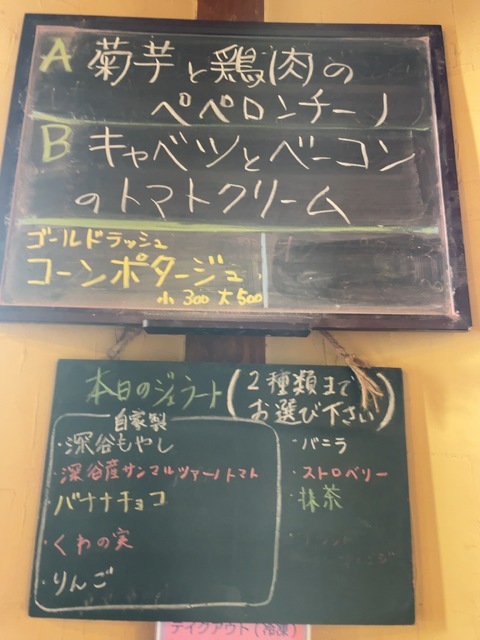 A 菊芋と鶏肉の
ペペロンチーノ
B キャベツとベーコン
のトマトクリーム
ゴールドラッシュ
コーンポタージュ
小 300 大 500
本日のジェラート(2種類まで
お選び下さい)
自家製
・深谷もやし
・深谷産サンマルツァーノトマト
・バナナチョコ
・くわの実
・りんご
・バニラ
・ストロベリー
・抹茶
テイクアウト(冷凍)